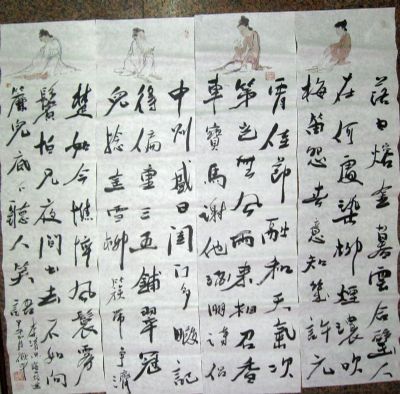 落日熔金暮雲合璧人
在何處染柳煙濃吹
梅笛怨春意知幾許元
宵佳節融和天氣次
第豈無風雨來相召香
車寶馬謝他酒朋詩侶
中州盛日閨門多暇記
得偏重三五鋪翠冠
兒捻金雪柳簇帶爭濟
楚如今憔悴風鬟霜
鬢怕見夜間出去不如向
簾兒底下聽人笑
語
李清照